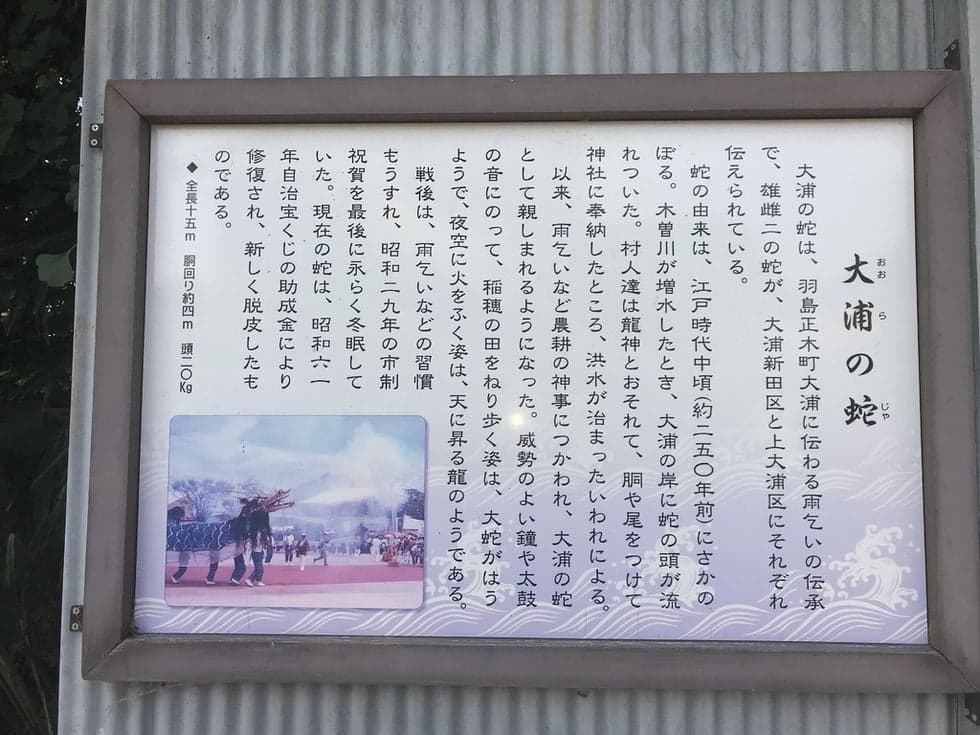 大浦の蛇
おおらじゃ
大浦の蛇は、羽島正木町大浦に伝わる雨乞いの伝承
で、雄雌二の蛇が、大浦新田区と上大浦区にそれぞれ
伝えられている。
蛇の由来は、江戸時代中頃(約二五〇年前)にさかの
ぼる。木曽川が増水したとき、大浦の岸に蛇の頭が流
れついた。村人達は龍神とおそれて、胴や尾をつけて
神社に奉納したところ、洪水が治まったいわれによる。
以来、雨乞いなど農耕の神事につかわれ、大浦の蛇
として親しまれるようになった。威勢のよい鐘や太鼓
の音にのって、稲穂の田をねり歩く姿は、大蛇がはう
ようで、夜空に火をふく姿は、天に昇る龍のようである。
戦後は、雨乞いなどの習慣
もうすれ、昭和二九年の市制
祝賀を最後に永らく冬眠して
いた。現在の蛇は、昭和六一
年自治宝くじの助成金により
修復され、新しく脱皮したも
のである。
◆ 全長十五m 胴回り約四m 頭二〇Kg